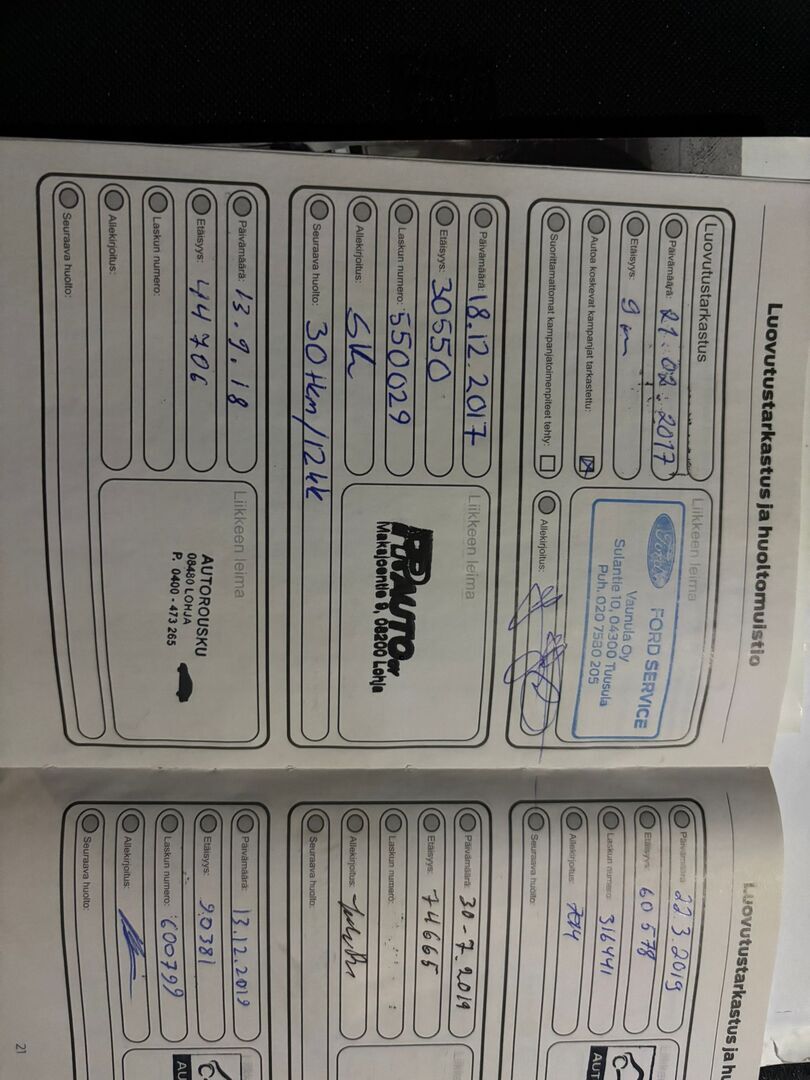 Luovutustarkastus ja huoltomuistio
Luovutustarkastus
Päivämäärä: 21.02.2017
Etäisyys: 9 m
Autoa koskevat kampanjat tarkastettu:
Suorittamattomat kampanjatoimenpiteet tehty:
Liikkeen leima
Ford
FORD SERVICE
Vaunula Oy
Sulantie 10, 04300 Tuusula
Puh. 020 7530 205
Allekirjoitus:
Päivämäärä: 18.12.2017
Etäisyys: 30550
Laskun numero: 550029
Allekirjoitus: SK
Seuraava huolto: 30tkm/12kk
Liikkeen leima
PRAUTO
Maksjoentie 9, 08200 Lohja
Päivämäärä: 13.9.18
Etäisyys: 44706
Laskun numero:
Allekirjoitus:
Seuraava huolto:
Liikkeen leima
AUTOROUSKU
08480 LOHJA
P. 0400 - 473 265
Luovutustarkastus ja h
Päivämäärä: 22.3.2019
Etäisyys: 60578
Laskun numero: 316441
Allekirjoitus:
Seuraava huolto:
AUT
Päivämäärä: 30-7.2019
Etäisyys: 74665
Laskun numero:
Allekirjoitus:
Seuraava huolto:
Päivämäärä: 13.12.2019
Etäisyys: 90381
Laskun numero: 600799
Allekirjoitus:
Seuraava huolto:
AU
21